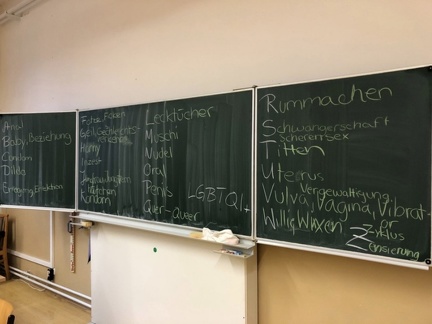 Anal
Baby, Beziehung
Condom
Dildo
Erregung, Ejektion
Geil, Geschlechts-
verkehr
Inzest
Jungfrauhäutchen
Kondom
Lecktücher
Muschi
Nudel
Oral
Penis
Quer-Queer
LGBTQI+
Rummachen
Schwangerschaft
Scherensex
Titten
Uterus
Vergewaltigung
Vulva, Vagina, Vibrat-
or
Willi, Wixen
Zyklus
Zensierung